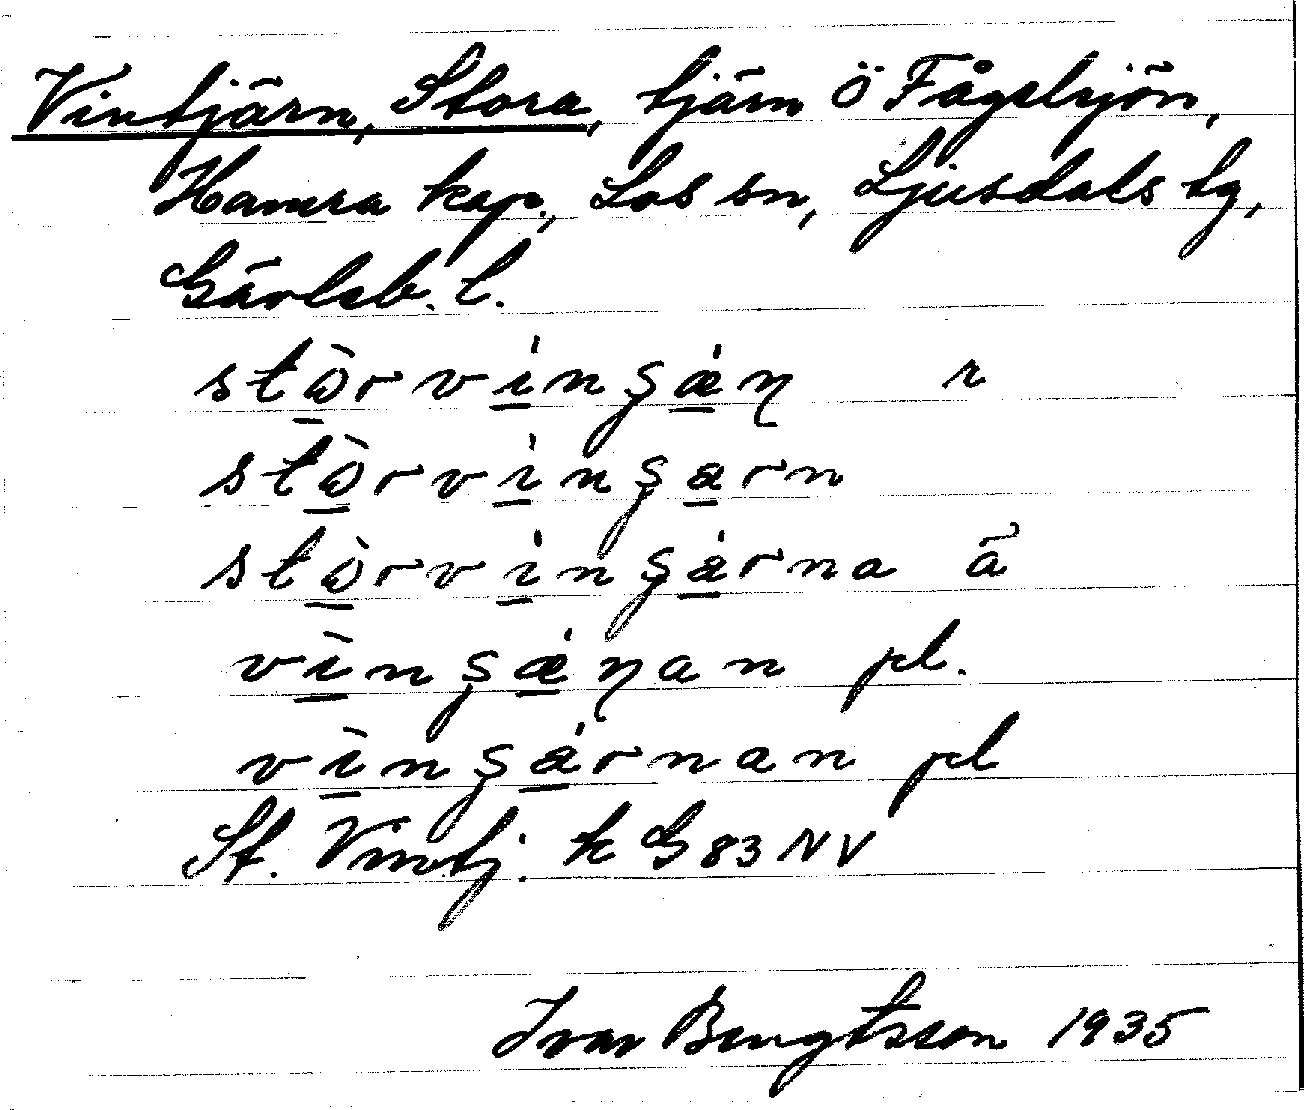 Vintjärn, Stora, tjärn Ö Fågelsjön,
Hamra kap., Los sn, Ljusdals tg,
Gävleb. l.
stòrvínşǽṇ r
stòrvínşarn
stòrvínşárna ä
vìnşǽṇan pl.
vìnşárnan pl
St. Vintj. k G 83 NV
Ivar Bengtsson 1935